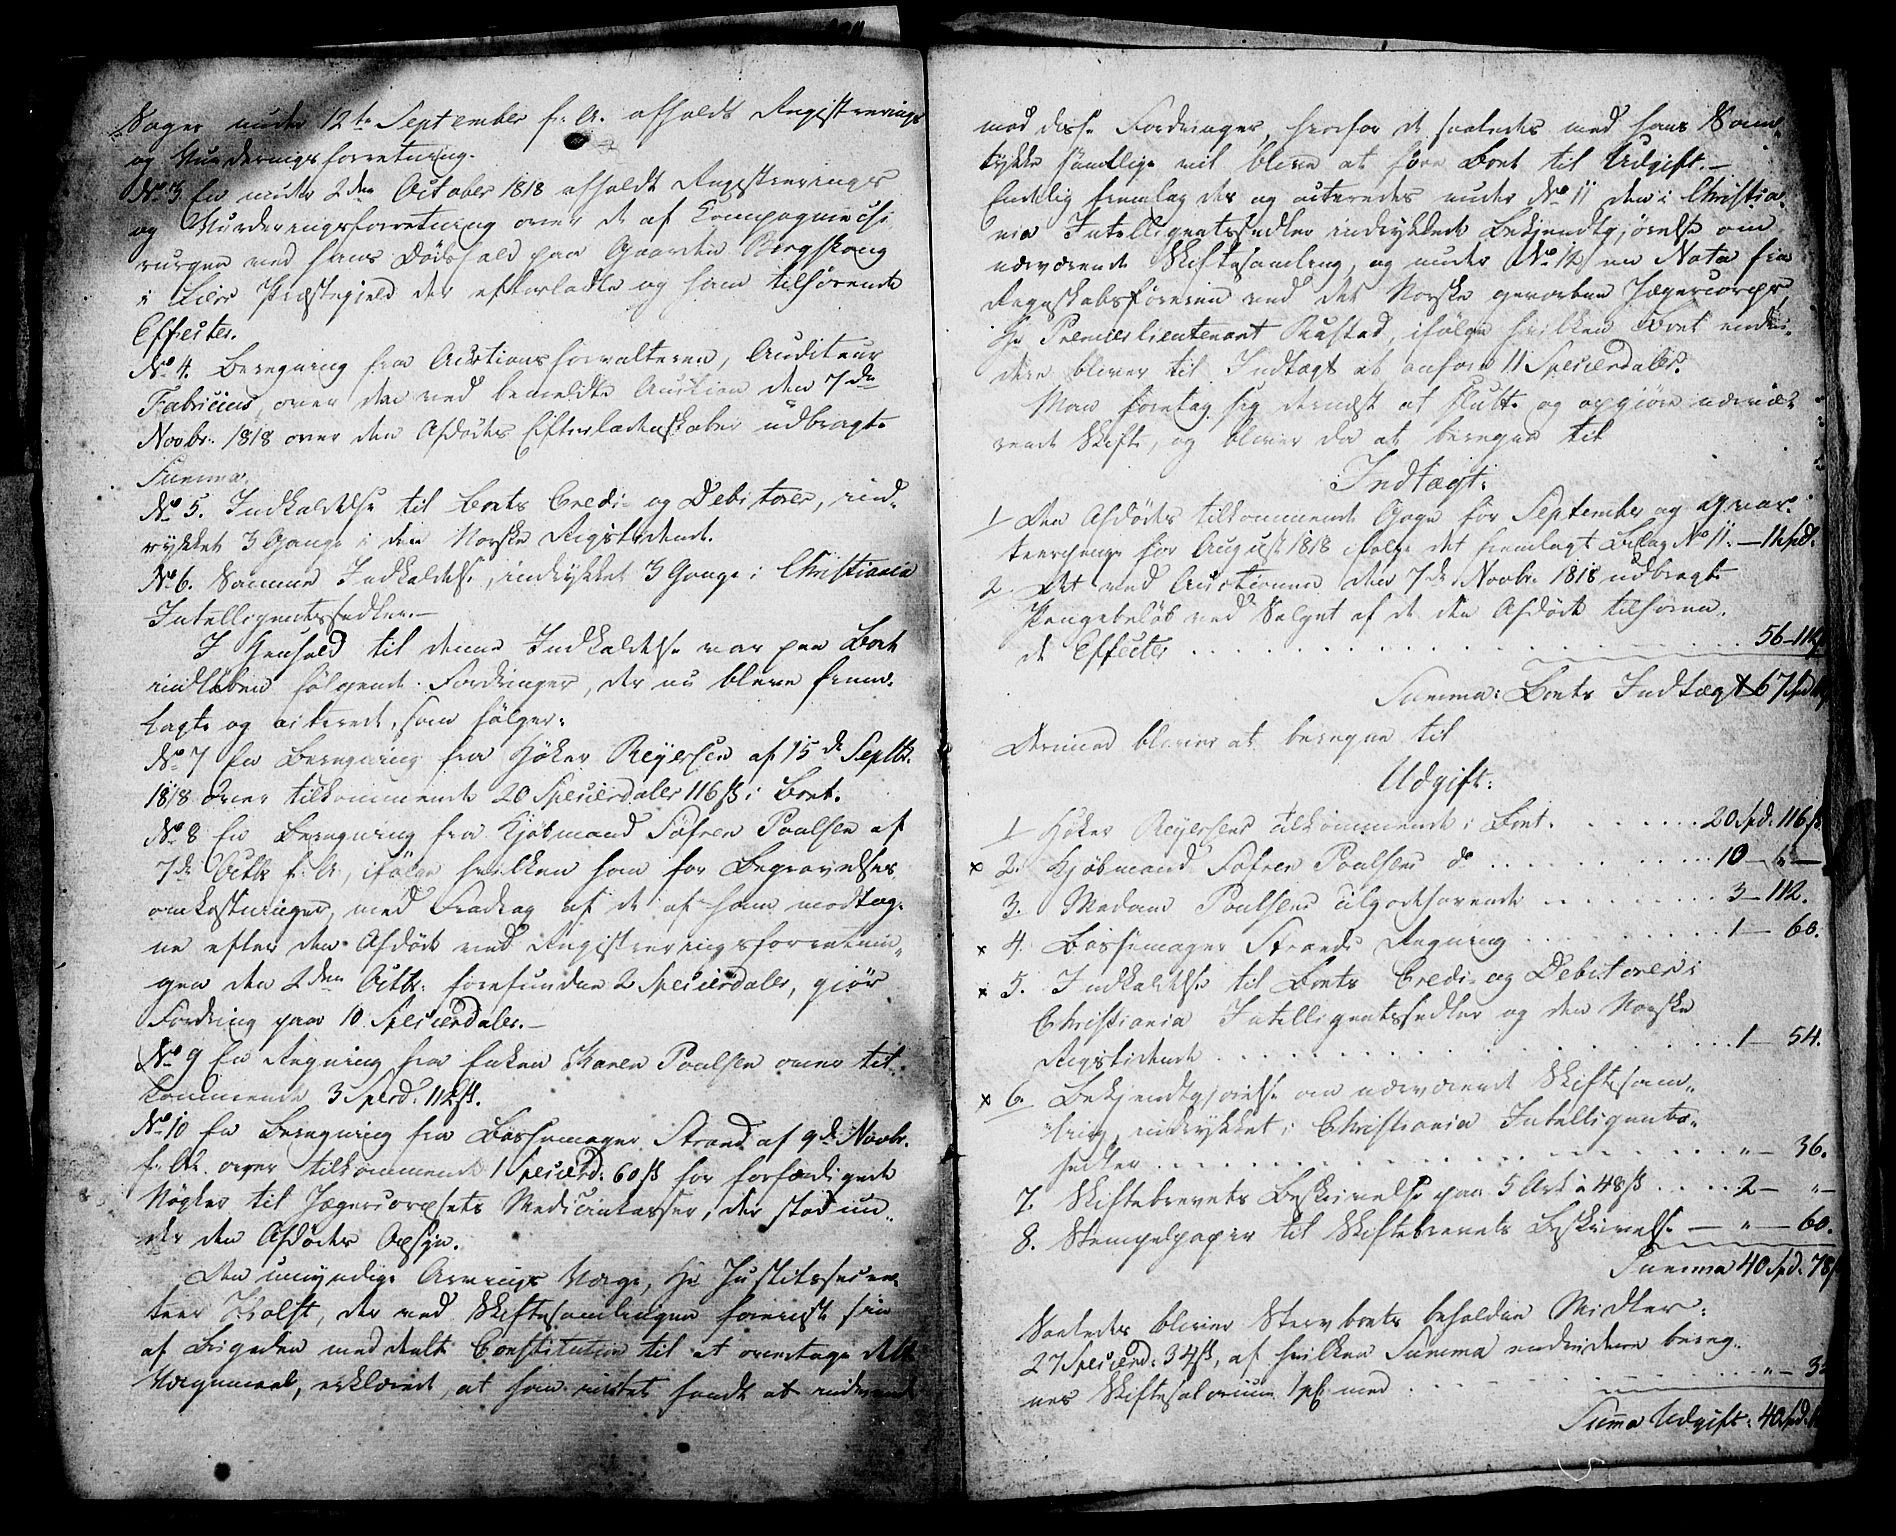 Sager under 12te September f: A. afholdt Registrerings
og Vurderingsforretning.
No 3. En under 2den October 1818 afholdt Registrerings
og Vurderingsforretning over de af Compagniechi
rurgen ved hans Dødsfald paa Gaarden Bergskoug
i Liers Præstegjeld der efterladte og ham tilhørende
Effecter.
No 4. Beregning fra Auctionsforvalteren, Auditeur
Fabricius, over den ved bemeldte Auction den 7de
Novbr. 1818 over den Afdødes Efterladenskaber udbragte
Summa.
No 5. Indkaldelse til Boets Credi- og Debitorer, ind-
rykket 3 Gange i den Norske Rigstidende.
No 6. Samme Indkaldelse, indrykket 3 Gange i Christiania
Intelligentssedler.—
I Henhold til denne Indkaldelse var paa Boet
indløben følgende Fordringer, der nu bleve frem-
lagte og acterede, som følger:
No 7 En Beregning fra Høker Reyersen af 15de Septbr.
1818 over tilkommende 20 Speciesdaler 116 ß i Boet.
No 8 En Beregning fra Kjøbmand Søfren Poulsen af
7de Octbr f: A., ifølge hvilken han for Begravelses
omkostninger, med Fradrag af de af ham modtag-
ne efter den Afdøde ved Registreringsforretnin-
gen den 2den Octbr. forefundne 2 Speciesdaler, gjør
Fordring paa 10 Speciesdaler.—
No 9 En Regning fra Enken Maren Poulsen over til-
kommende 3 Specd. 112 ß.
No 10 En Beregning fra Bøssemager Strand af 9de Novbr.
f. Ar. over tilkommende 1 Speciesd: 60 ß for forfærdigede
Nøgler til Jægercorpsets Medicinkasser, der stod un-
der den Afdødes Opsyn.
Den umyndige Arvings Værge, Hr Justitssecre-
teer Holst, der ved Skiftesamlingen foreviste sin
af Brigaden meddeelte Constitution til at overtage dette
Værgemaal, erklærede, at han intet havde at indvende
mod disse Fordringer, hvorfor de saaledes med hans Sam-
tykke samtlige vil blive at føre Boet til Udgift.—
Endelig fremlagdes og acteredes under No 11 den i Christia-
nia Intelligentssedler indrykkede Bekjendtgjørelse om
nærværende Skiftesamling, og under No 12 en Nota fra
Regnskabsføreren ved det Norske gevorbne Jægercorps,
Hr Premierlieutenant Rustad, ifølge hvilken Boet endvi-
dere bliver til Indtægt at anføre 11 Speciesdaler.
Man foretog sig dernæst at slutte og opgjøre nærvæ-
rende Skifte, og bliver da at beregne til
Indtægt:
1 Den Afdødes tilkommende Gage for September og qvar-
teerpenge for August 1818 ifølge det fremlagte Bilag No 11. — 11 spd.
2. Det ved Auctionen den 7de Novbr. 1818 udbragte
Pengebeløb ved Salget af de den Afdøde tilhøren-
de Effecter . . . . . 56—112.
Summa: Boets Indtægt 67 spd
Derimod bliver at beregne til
Udgift:
1 Høker Reyersens tilkommende i Boet. . . . 20 spd. 116 ß
x 2. Kjøbmand Søfren Poulsens do . . . . 10 — " —
3. Madame Poulsens tilgodehavende . . . . 3 — 112.
x 4. Bøssemager Strands Regning . . . . 1 — 60.
x 5. Indkaldelse til Boets Credi- og Debitorer i
Christiania Intelligentssedler og den Norske
Rigstidende . . . . 1 — 54.
x 6. Bekjendtgjørelse om nærværende Skiftesam-
ling, indrykket i Christiania Intelligents-
sedler . . . . " — 36.
7. Skiftebrevets Beskrivelse paa 5 Ark à 48 ß . . . . 2 — " —
8. Stempelpapir til Skiftebrevets Beskrivelse — " — 60.
Summa 40 Spd. 78 ß
Saaledes bliver Sterv boets beholdne Midler:
27 Speciesd: 34 ß, af hvilken Summa endvidere bereg-
nes Skiftesalarium 1 pC. med . . . . " — 3
Suma Udgift: 40 spd.